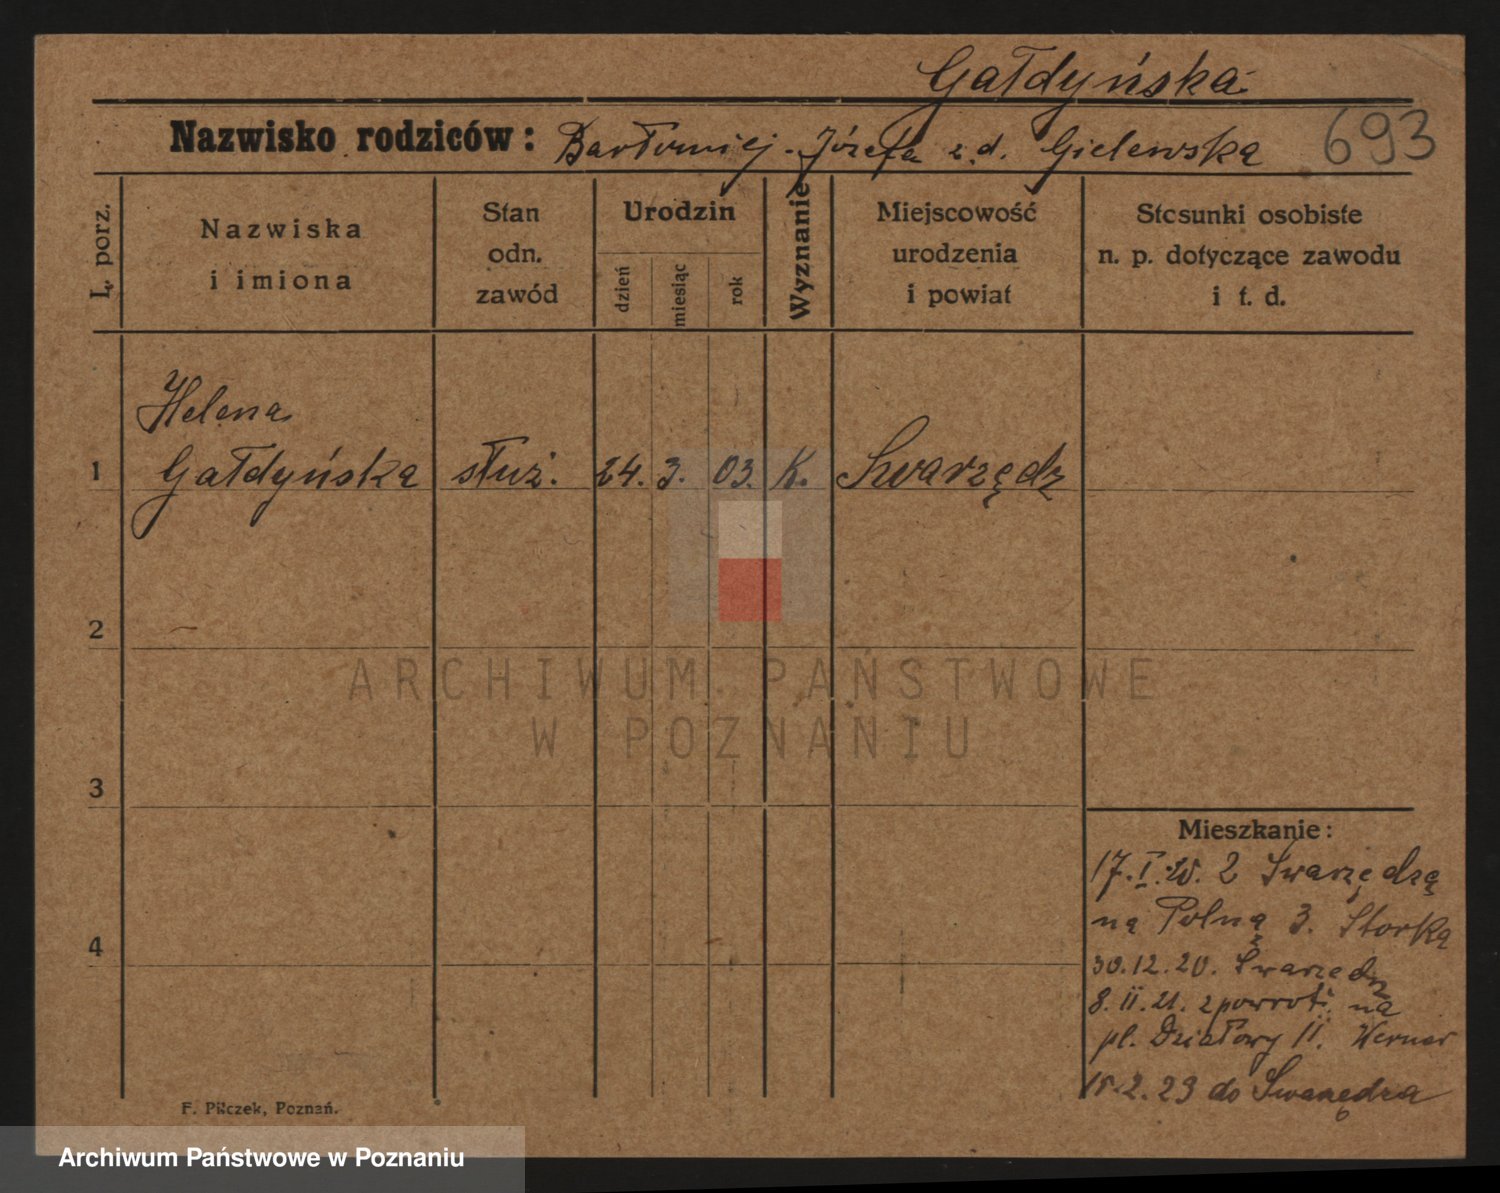 Gałdyńska
Nazwisko rodziców: Bartłomiej - Józefa z d. Gielewska 693
L. porz.
Nazwiska
i imiona
Stan
odn.
zawód
Urodzin
dzień
miesiąc
rok
Wyznanie
Miejscowość
urodzenia
i powiat
Stosunki osobiste
n. p. dotyczące zawodu
i t. d.
Helena
1 Gałdyńska służ. 24. 3. 03. K. Swarzędz
2
ARCHIWUM PAŃSTWOWE
W POZNANIU
3
Mieszkanie:
17. I. 20. z Swarzędza
na Polną 3. Storka
4
30.12.20. Swarzędz
8. II. 21. z powrot. na
pl. Działowy 11. Werner
15.2.23 do Swarzędza
F. Pilczek, Poznań.
Archiwum Państwowe w Poznaniu